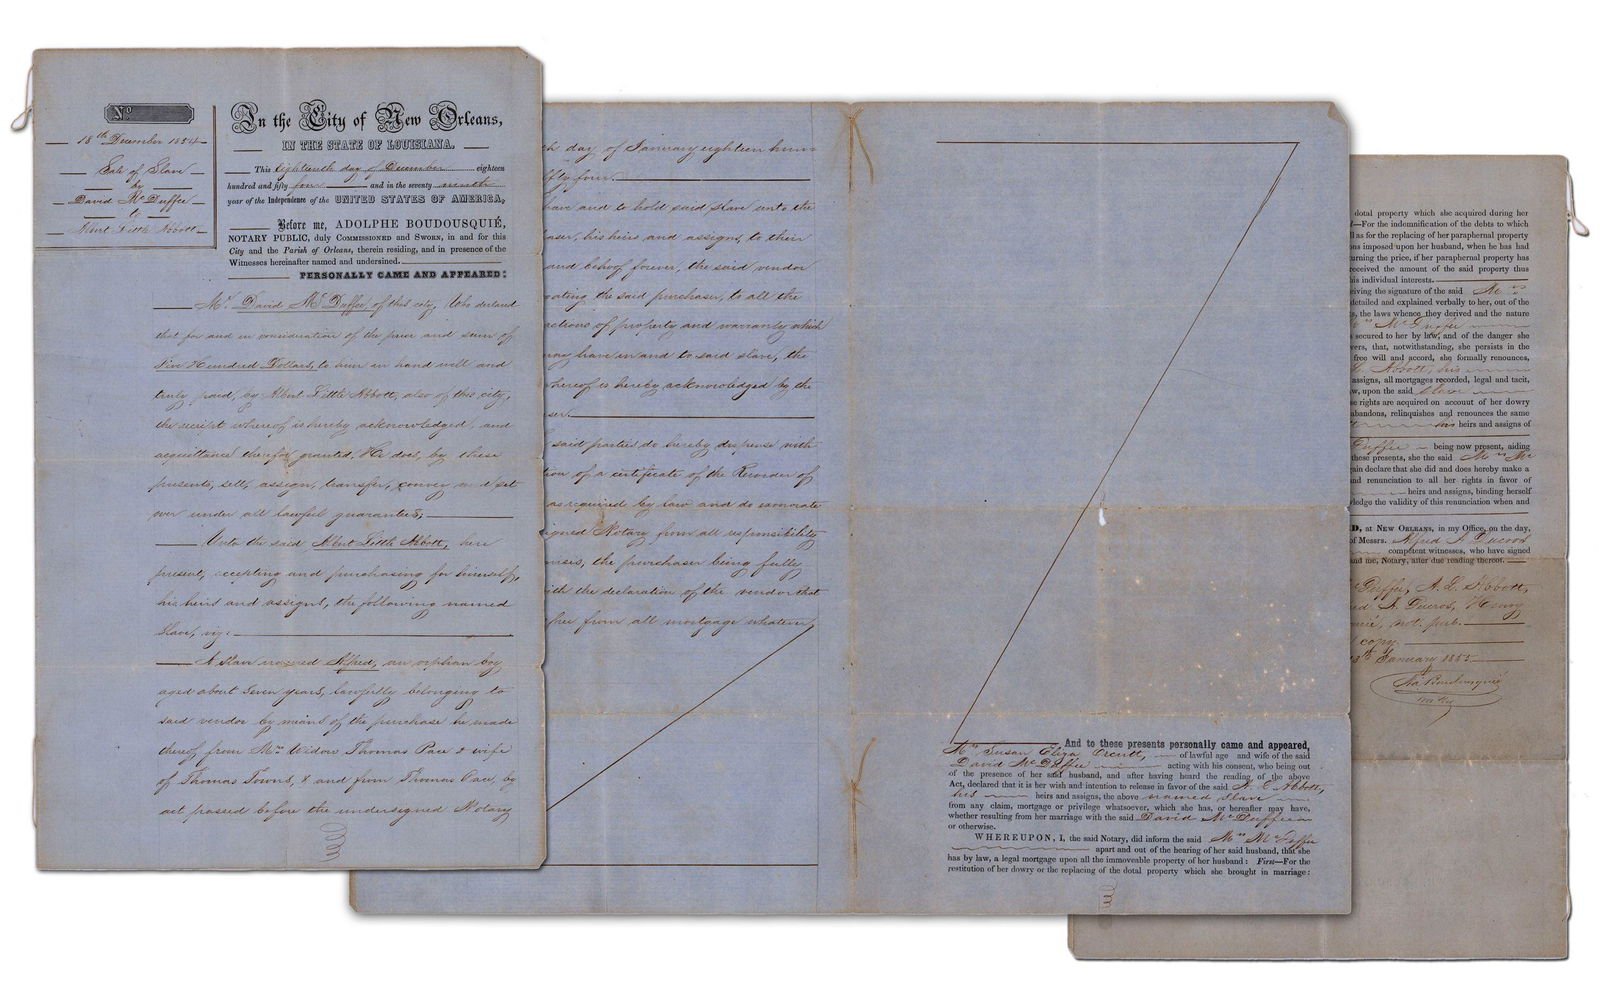 No
18th December 1854
Sale of Slave
by
David McDuffee
to
Albert Little Abbott
In the City of New Orleans,
IN THE STATE OF LOUISIANA.
This Eighteenth day of December eighteen
hundred and fifty four and in the seventy ninth
year of the Independence of the UNITED STATES OF AMERICA,
Before me, ADOLPHE BOUDOUSQUIÉ,
NOTARY PUBLIC, duly COMMISSIONED and SWORN, in and for this
City and the Parish of Orleans, therein residing, and in presence of the
Witnesses hereinafter named and undersined.
PERSONALLY CAME AND APPEARED:
Mr. David McDuffee of this city, Who declared
that for and in consideration of the price and sum of
Five Hundred Dollars, to him in hand well and
truly paid, by Albert Little Abbott, also of this city,
the receipt whereof is hereby acknowledged, and
acquittance therefor granted, He does, by these
presents, sell, assign, transfer, convey and set
over under all lawful guarantees,
Unto the said Albert Little Abbott, here
present, accepting and purchasing for himself,
his heirs and assigns, the following named
Slave, viz:
A Slave named Alfred, an orphan boy
aged about Seven years, lawfully belonging to
said vendor by means of the purchase he made
thereof from Mrs Widow Thomas Pace & wife
of Thomas Towns, & and from Thomas Pace, by
act passed before the undersigned Notary
th day of January eighteen hun
fifty four.
have and to hold said slave unto the
aser, his heirs and assigns, to their
and behoof forever, the said vendor
ogating the said purchaser, to all the
actions of property and warranty which
may have in and to said slave, the
whereof is hereby acknowledged by the
ser.
said parties do hereby dispense with
tion of a certificate of the Recorder of
as required by law and do exonerate
signed Notary from all responsibility
mises, the purchaser being fully
with the declaration of the vendor that
free from all mortgage whatever,
And to these presents personally came and appeared,
Mrs Susan Eliza Orcutt, of lawful age and wife of the said
David McDuffee acting with his consent, who being out
of the presence of her said husband, and after having heard the reading of the above
Act, declared that it is her wish and intention to release in favor of the said A. L. Abbott,
his heirs and assigns, the above named slave
from any claim, mortgage or privilege whatsoever, which she has, or hereafter may have,
whether resulting from her marriage with the said David McDuffee
or otherwise.
WHEREUPON, I, the said Notary, did inform the said Mrs McDuffee
apart and out of the hearing of her said husband, that she
has by law, a legal mortgage upon all the immoveable property of her husband: First—For the
restitution of her dowry or the replacing of the dotal property which she brought in marriage:
dotal property which she acquired during her
—For the indemnification of the debts to which
ll as for the replacing of her paraphernal property
ns imposed upon her husband, when he has had
urning the price, if her paraphernal property has
received the amount of the said property thus
his individual interests.
iving the signature of the said Mrs
detailed and explained verbally to her, out of the
s, the laws whence they derived and the nature
Mrs McDuffee
s secured to her by law, and of the danger she
vers, that, notwithstanding, she persists in the
free will and accord, she formally renounces,
L. Abbott, his
assigns, all mortgages recorded, legal and tacit,
w, upon the said slave
se rights are acquired on account of her dowry
abandons, relinquishes and renounces the same
his heirs and assigns of
Duffee being now present, aiding
these presents, she the said Mrs Mc
ain declare that she did and does hereby make a
and renunciation to all her rights in favor of
heirs and assigns, binding herself
ledge the validity of this renunciation when and
D, at NEW ORLEANS, in my Office, on the day,
of Messrs. Alfred A. Ducros
competent witnesses, who have signed
and me, Notary, after due reading thereof.
Duffee, A. L. Abbott,
ed A. Ducros, Henry
not. pub.
copy.
13th January 1855
Ad Boudousquié
not. pub.